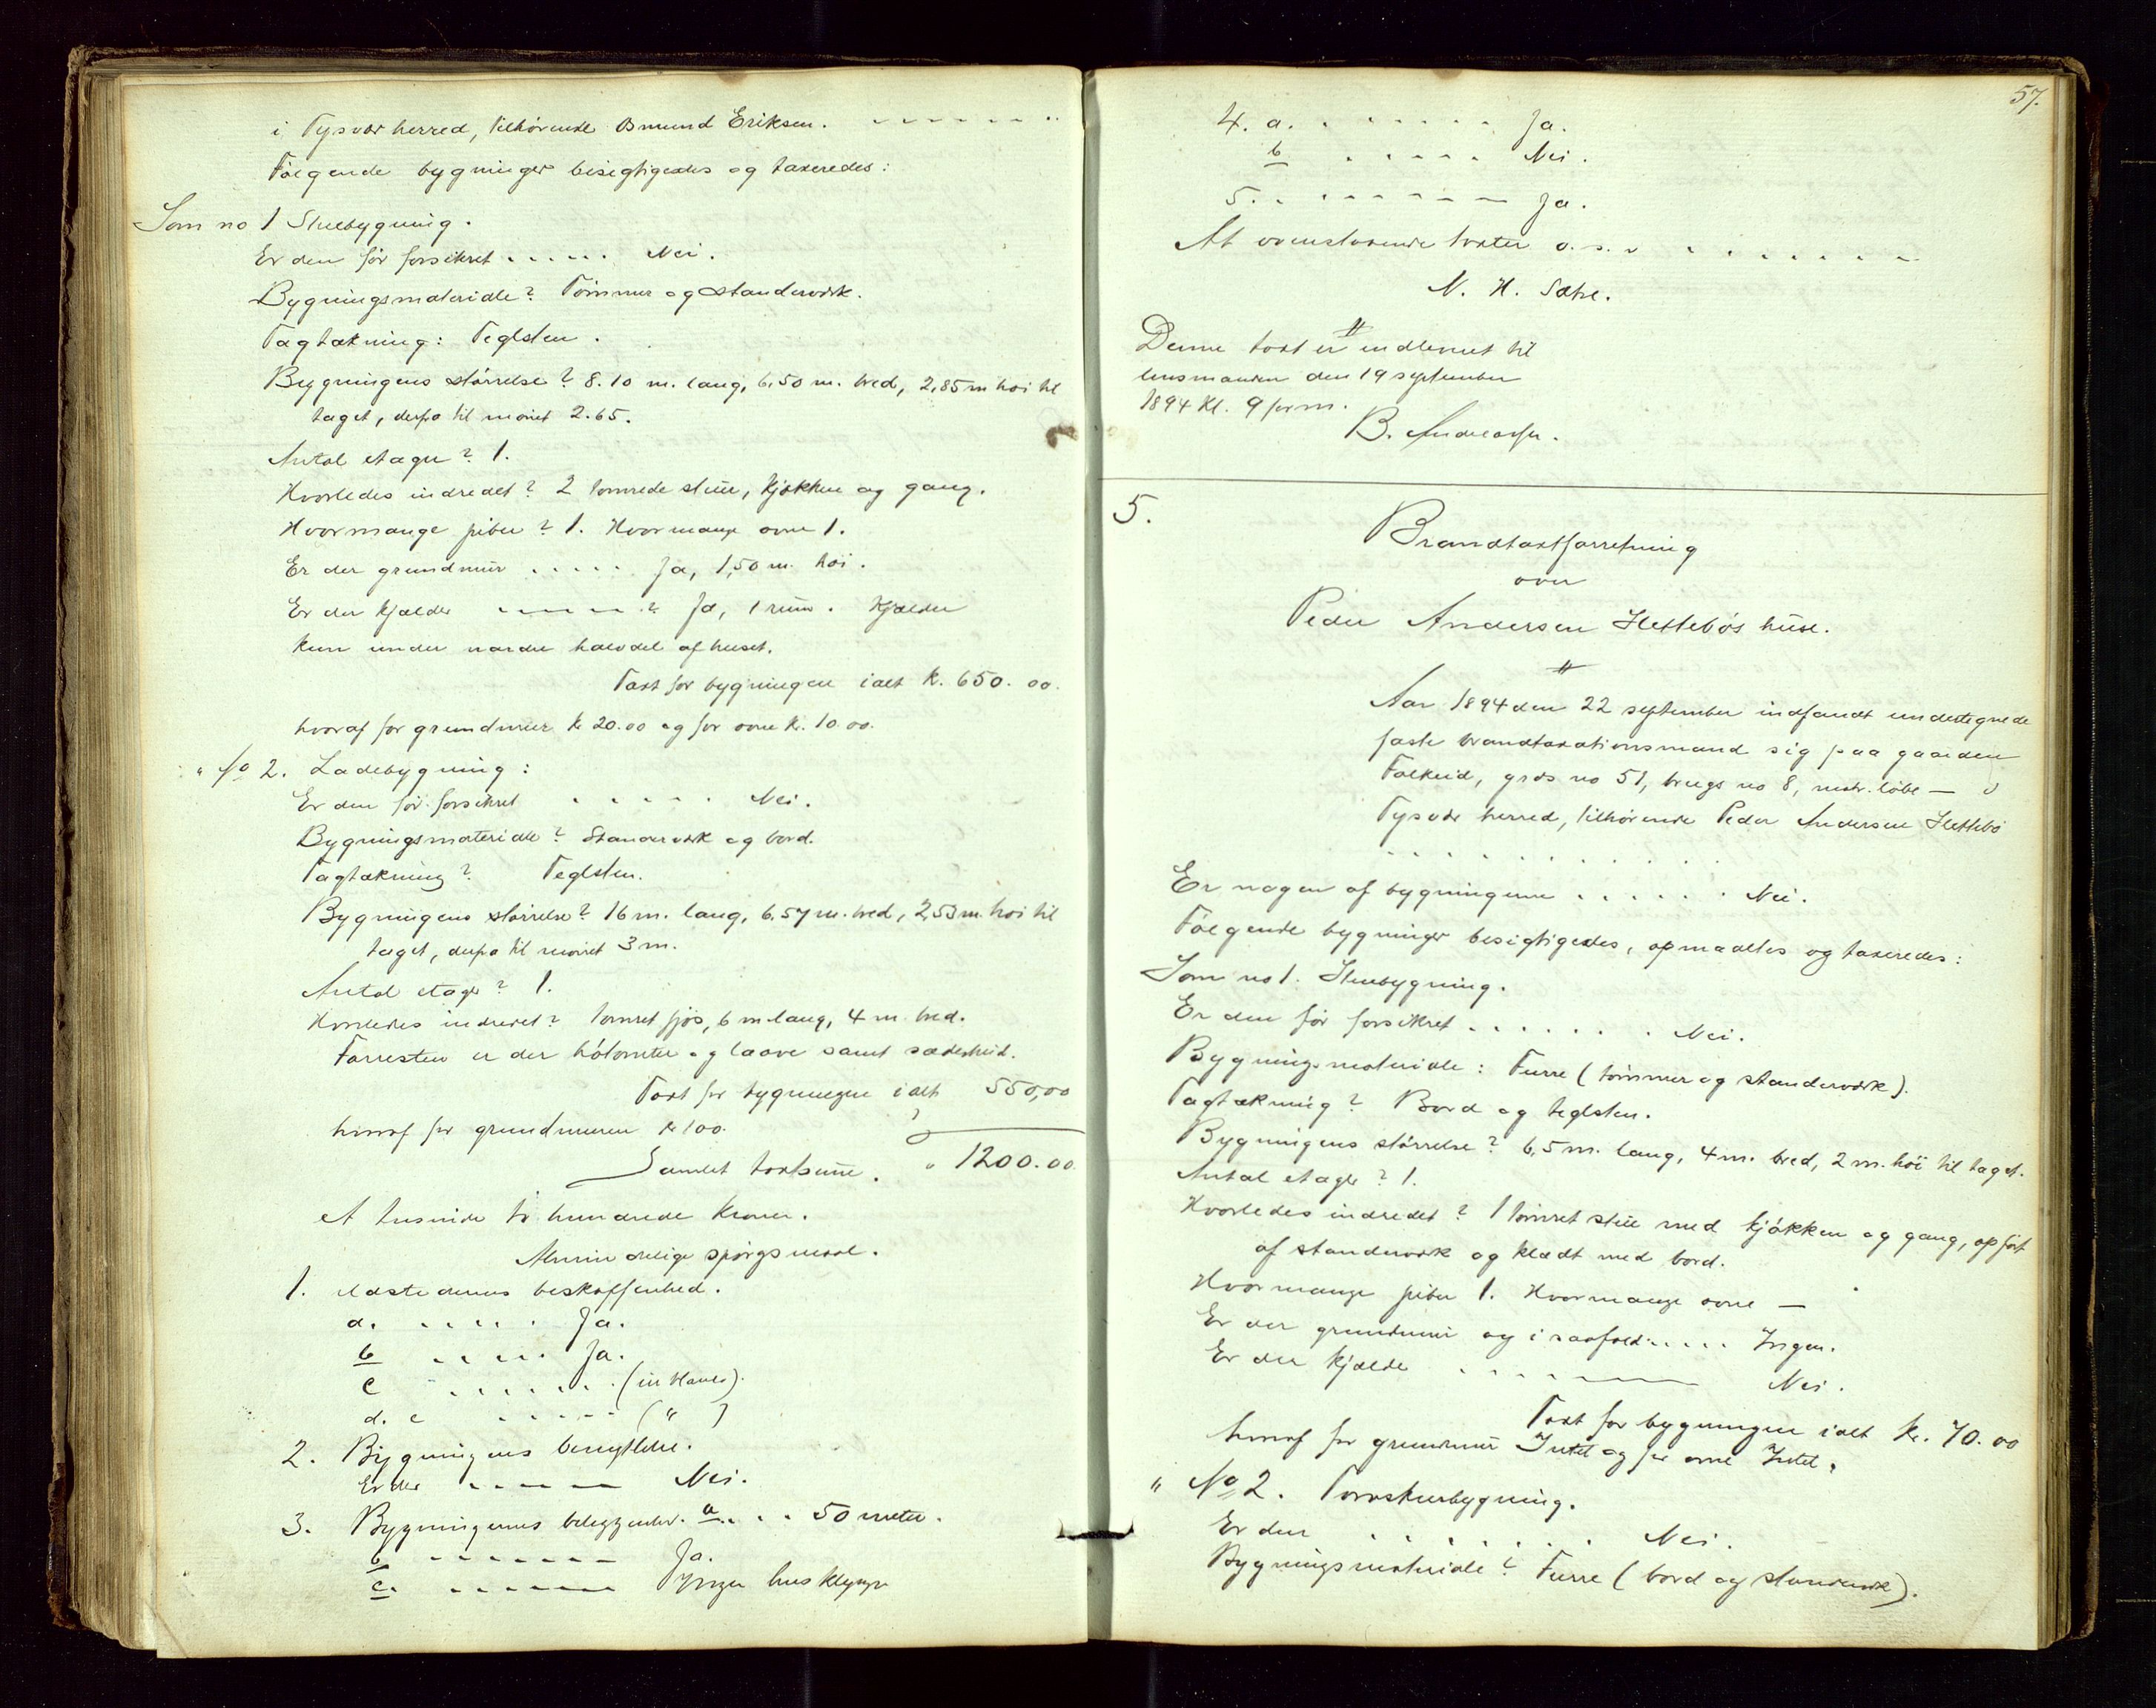 i Tysvær herred, tilhørende Omund Eriksen. - - - - - - -
Følgende bygninger besigtigedes og taxeredes:
Som no 1 Stuebygning.
Er den før forsikret . . . . . Nei.
Bygningsmateriale? Tømmer og standerværk.
Tagtækning: Teglsten.
Bygningens størrelse? 8.10 m. lang, 6,50 m. bred, 2,85 m høi til
taget, derfra til mønet 2.65.
Antal etager? 1.
Hvorledes indredet? 2 tømrede stuer, kjøkken og gang.
Hvormange piber? 1. Hvormange ovne 1.
Er der grundmur . . . . . Ja, 1,50 m. høi.
Er der kjælder - - - - - ? Ja, 1 rum. Kjælder
kun under nordre halvdel af huset.
Taxt for bygningen ialt k. 650.00.
hvoraf for grundmur kr 20.00 og for ovne kr. 10.00.
" No 2. Ladebygning:
Er den før forsikret . . . . . Nei.
Bygningsmateriale? Standerværk og bord.
Tagtækning? Teglsten.
Bygningens størrelse? 16 m. lang, 6,57 m. bred, 2,53 m. høi til
taget, derfra til mønet 3 m.
Antal etager? 1.
Hvorledes indredet? Tømret fjøs, 6 m lang, 4 m. bred.
Forresten er der høtomter og laave samt
Taxt for bygningen ialt 550,00
hvoraf for grundmuren kr 100.
Samlet taxtsum. " 1200.00
et tusinde to hundrede kroner.
Almindelige spørgsmaal.
1. ildstedernes beskaffenhed.
a. . . . . . Ja.
b . . . . . Ja.
c . . . . . . . (
d. e . . . . . . ( " )
2. Bygningens benyttelse.
Er der - - - - - Nei.
3. Bygningernes beliggenhed. a. . . . 50 meter.
b - - - - - - - Ja.
c. - - - - - - husklynge
57.
4. a. . . . . . . . Ja.
b . . . . . Nei.
5. . - - - - - - - Ja.
At ovenstaaende taxter o. s. v . . . . . . .
N. H. Sætre.
Denne taxt er indleveret til
lensmanden den 19 september
1894 kl. 9 form.
B. Andreassen.
5.
Brandtaxtforretning
over
Peder Andersen Hettebøs huse.
Aar 1894 den 22 september indfandt undertegnede
faste brandtaxationsmand sig paa gaarden
Falkeid, grds no 51, brugs no 8, matr. løbe — i
Tysvær herred, tilhørende Peder Andersen Hettebø
. . . . . . . . . . .
Er nogen af bygningerne . . . . . . Nei.
Følgende bygninger besigtigedes, opmaaltes og taxeredes:
Som no 1. Stuebygning.
Er den før forsikret . . . . . . . Nei.
Bygningsmateriale: Furre (tømmer og standerværk).
Tagtækning? Bord og teglsten.
Bygningens størrelse? 6,5 m. lang, 4 m. bred, 2 m. høi til taget.
Antal etager? 1.
Hvorledes indredet? 1 tømret stue med kjøkken og gang, opført
af standerværk og klædt med bord.
Hvormange piber 1. Hvormange ovne —
Er der grundmur og i saafald . . . . . Ingen.
Er der kjælder - - - - - - - Nei.
Taxt for bygningen ialt kr. 70.00
hvoraf for grundmur Intet og for ovne Intet.
" No 2. Torvskurbygning.
Er den . . . . . . . Nei.
Bygningsmateriale? Furre (bord og standerværk).